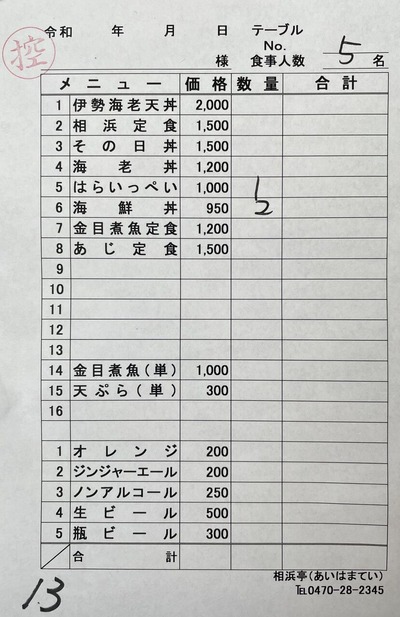 控
令和 年 月 日 テーブル
No.
様 食事人数 5 名
メニュー 価格 数量 合計
1 伊勢海老天丼 2,000
2 相浜定食 1,500
3 その日丼 1,500
4 海老丼 1,200
5 はらいっぺい 1,000 1
6 海鮮丼 950 2
7 金目煮魚定食 1,200
8 あじ定食 1,500
9
10
11
12
13
14 金目煮魚(単) 1,000
15 天ぷら(単) 300
16
1 オレンジ 200
2 ジンジャーエール 200
3 ノンアルコール 250
4 生ビール 500
5 瓶ビール 300
合計
相浜亭(あいはまてい)
℡0470-28-2345
13